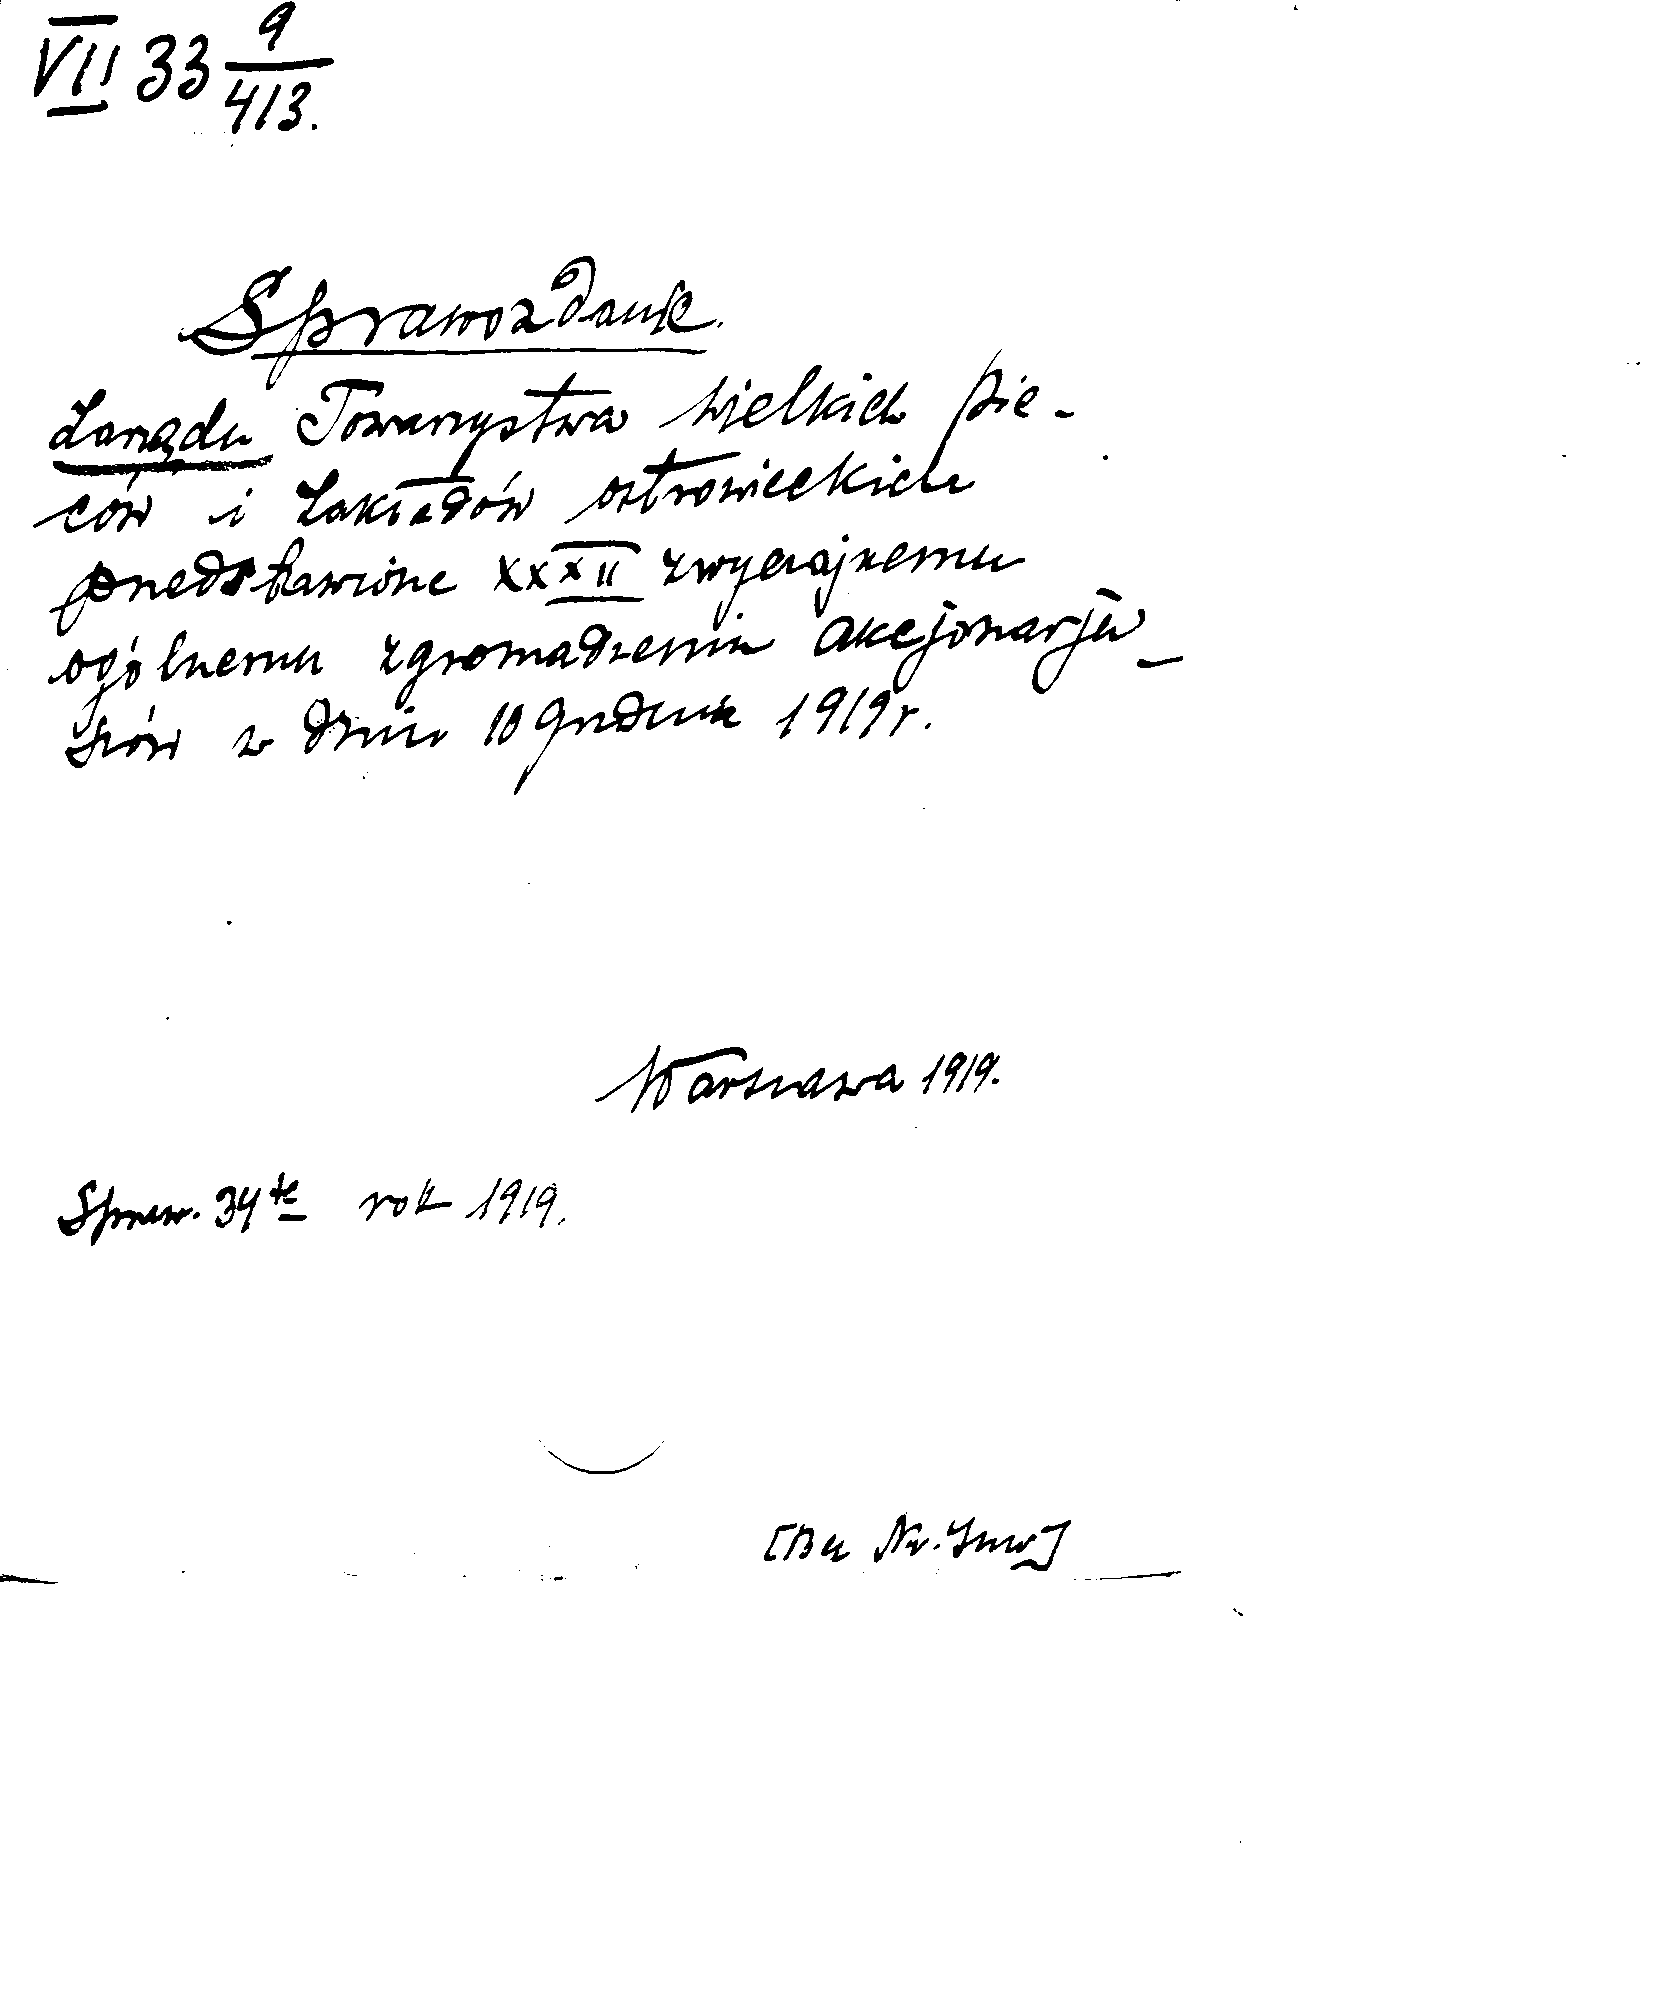 VII 33 9/413.
Sprawozdanie.
Zarządu Towarzystwa Wielkich Pie-
ców i Zakładów ostrowieckich
przedstawione XXXII zwyczajnemu
ogólnemu zgromadzeniu akcjonarju-
szów w dniu 10 Grudnia 1919 r.
Warszawa 1919.
Spraw. 34te rok 1919.
[Bez Nr. Inw]